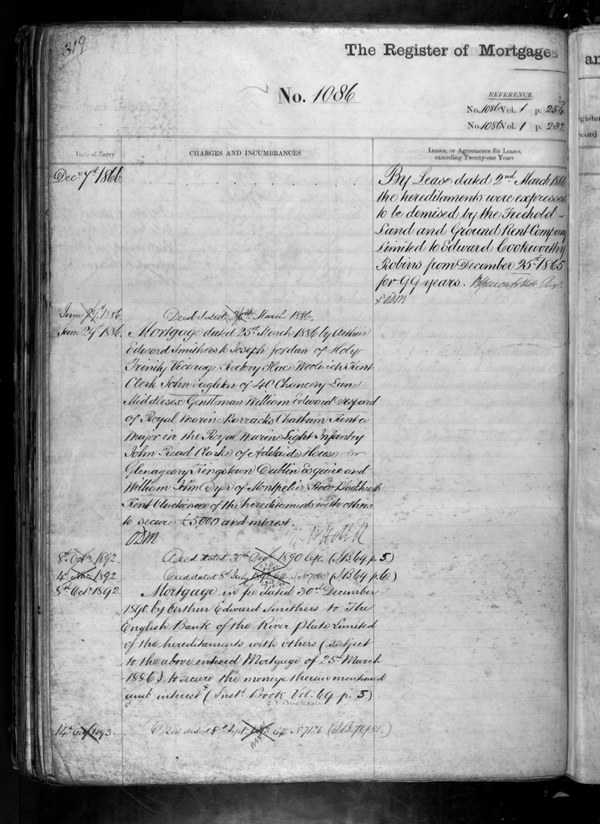 319
The Register of Mortgages
an
No. 1086
REFERENCE
No. 1086 Vol. 1 p. 254
No. 1086 Vol. 1 p. 282
Date of Entry
CHARGES AND INCUMBRANCES
Leases, or Agreements for Leases, exceeding Twenty-one Years
Decr 7th 1866
By Lease dated 2nd March 1866
the hereditaments were expressed
to be demised by the Freehold
Land and Ground Rent Company
Limited to Edward Cookworthy
Robins from December 25th 1865
for 99 years.
June 1886
Deed dated 26th March 1886.
June 29 1886
Mortgage dated 25th March 1886 by Arthur
Edward Smithers to Joseph Jordan of Holy
Trinity Vicarage Rectory Place Woolwich Kent
Clerk John Eagleton of 40 Chancery Lane
Middlesex Gentleman William Edward Despard
of Royal Marine Barracks Chatham Kent a
Major in the Royal Marine Light Infantry
John Read Clarke of Adelaide House
Glenageary Kingstown Dublin Esquire and
William of Montpelier Blackheath
Kent of the hereditaments with others
to secure £5,000 and interest.
8th Octr 1892
Deed dated 30th 1890 (I.B. 69 p. 5)
4th 1892
Deed dated 8th July (I.B. 69 p. 6)
8th Octr 1892
Mortgage in fee dated 30th December
1890 by Arthur Edward Smithers to The
English Bank of the River Plate Limited
of the hereditaments with others (subject
to the above entered Mortgage of 25th March
1886) to secure the moneys therein mentioned
and interest (Inst. Book Vol. 69 p. 5)
14th 1893.
Deed dated 8th Sept.